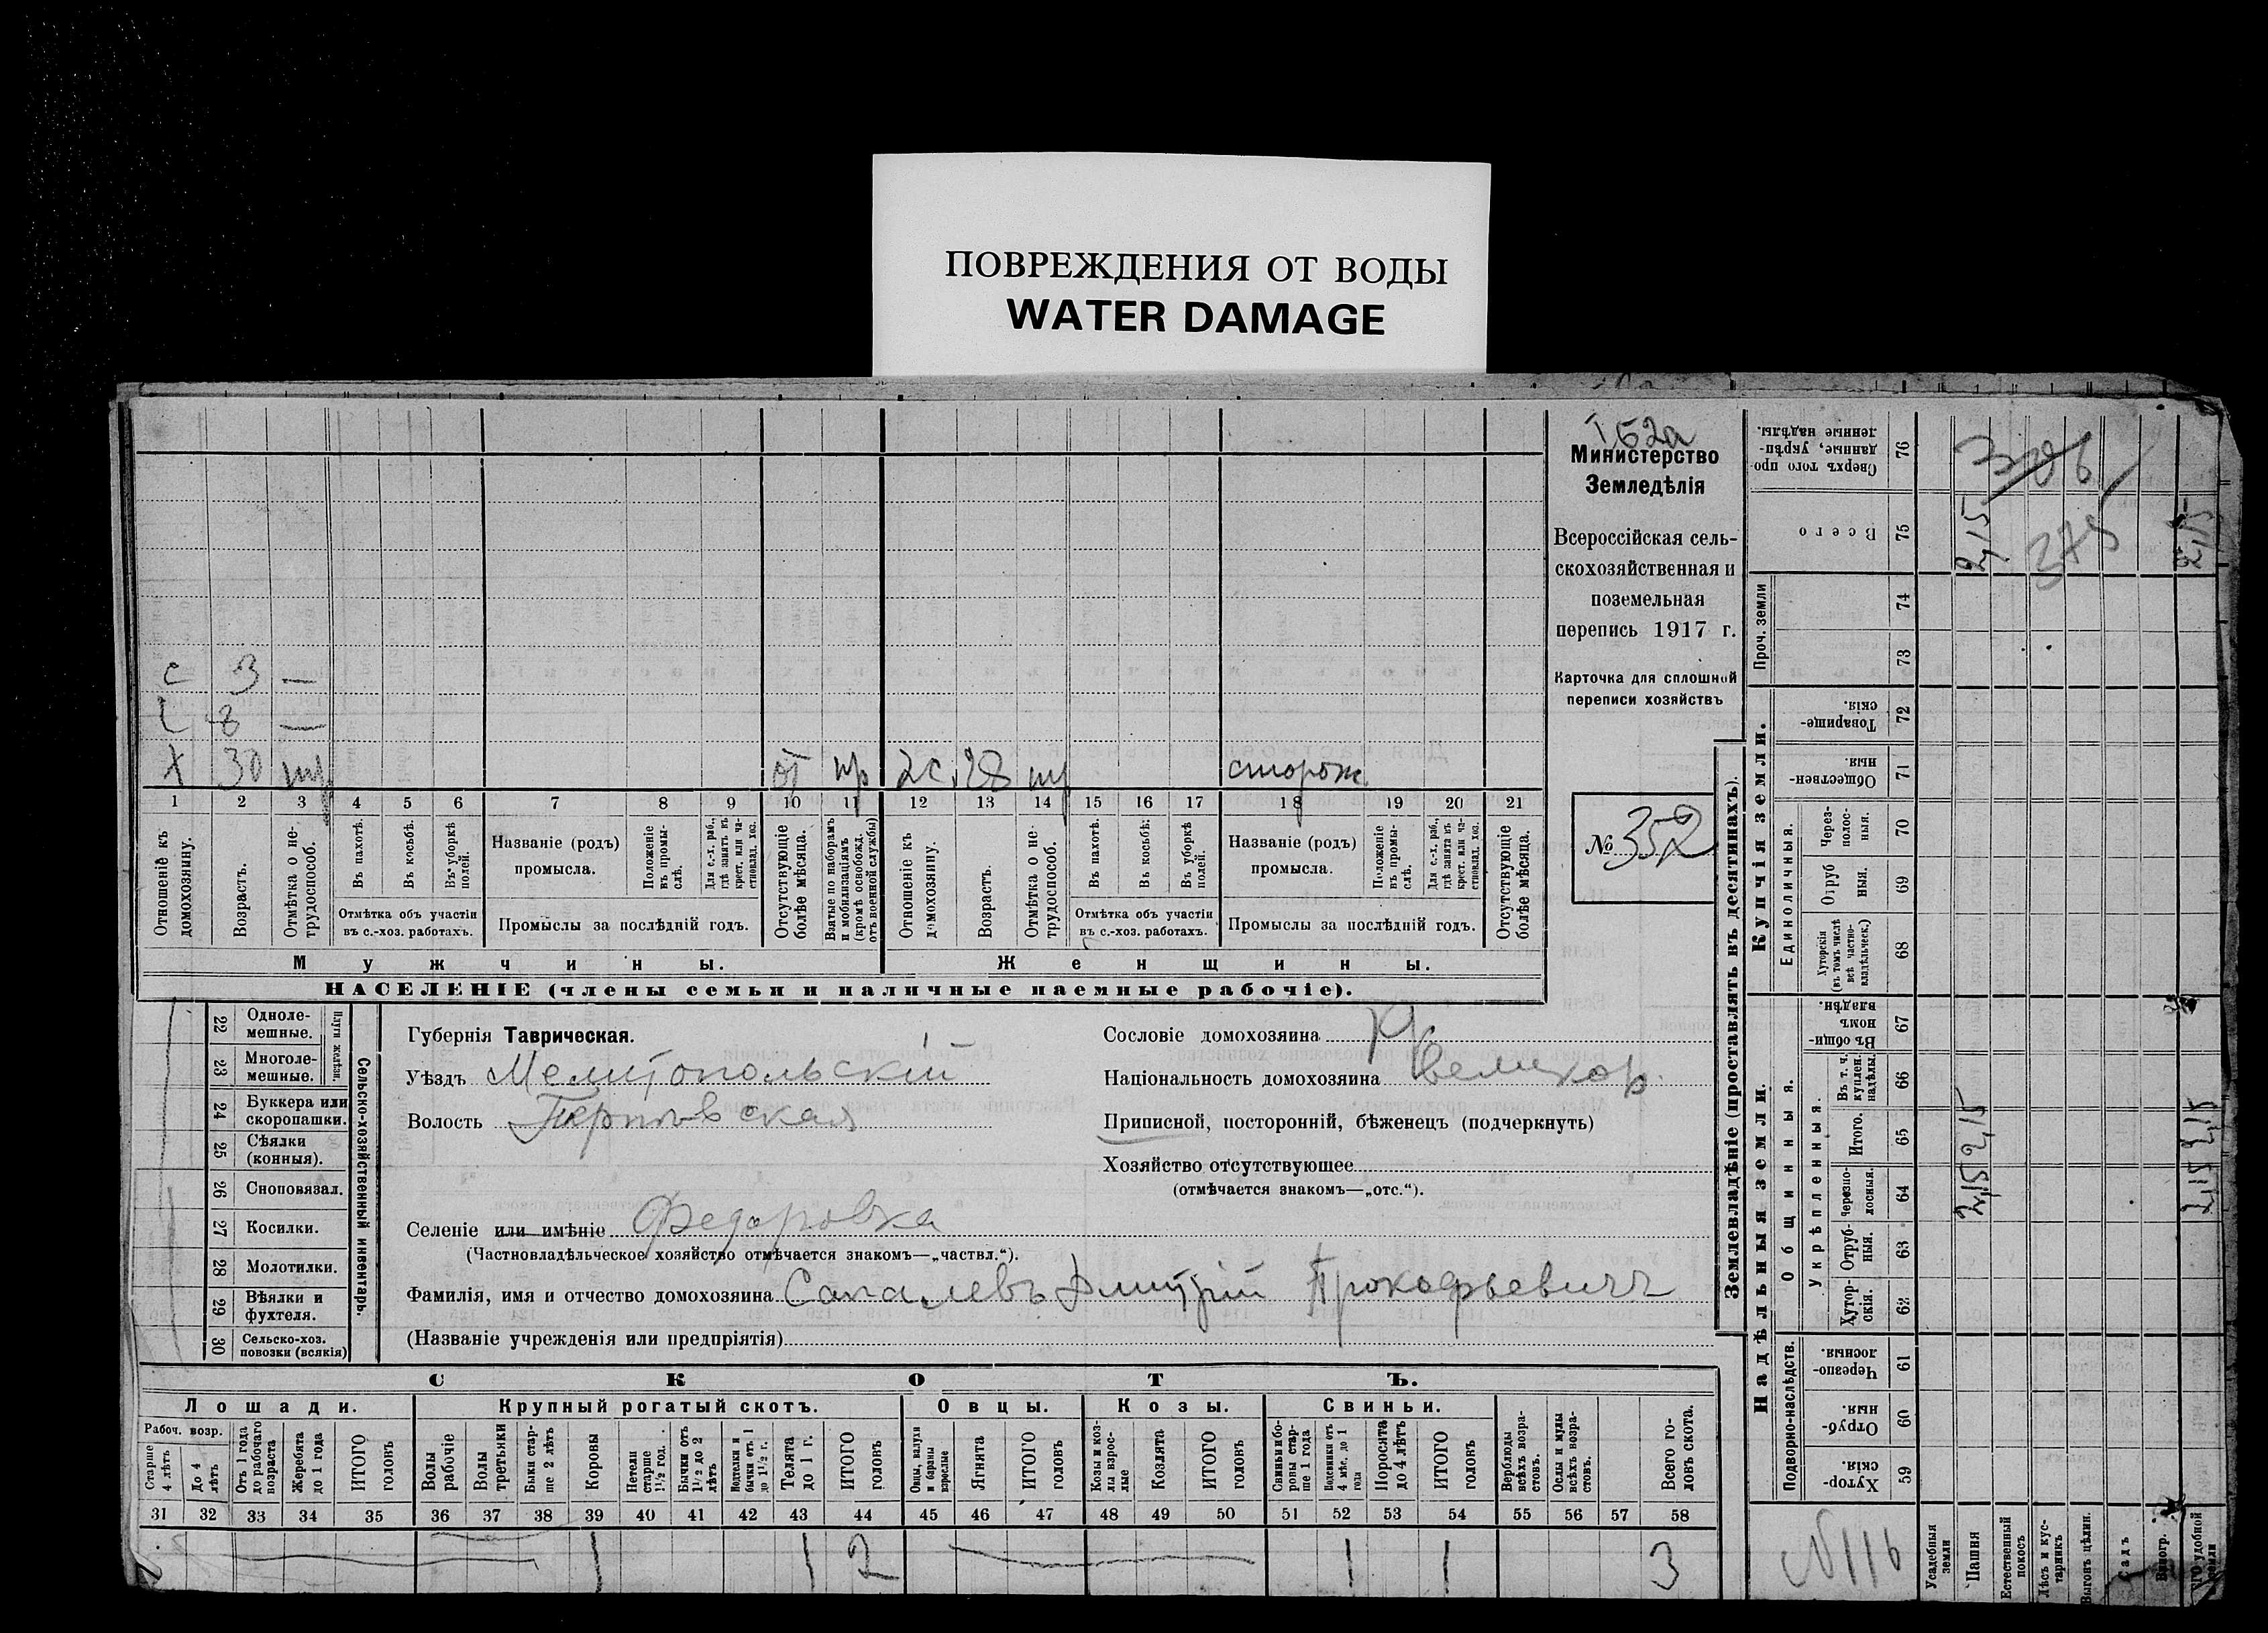 ПОВРЕЖДЕНИЯ ОТ ВОДЫ
WATER DAMAGE
Министерство
Земледѣлія
Всероссійская сель-
скохозяйственная и
поземельная
перепись 1917 г.
Карточка для сплошной
переписи хозяйствъ
№ 352
с 3 —
8 —
х 30
28 сторож
1 2 3 4 5 6 7 8 9 10 11 12 13 14 15 16 17 18 19 20 21
Отношеніе къ домохозяину.
Возрастъ.
Отмѣтка о не-трудоспособ.
Въ пахотѣ.
Въ косьбѣ.
Въ уборкѣ полей.
Отмѣтка объ участіи
въ с.-хоз. работахъ.
Названіе (родъ)
промысла.
Положеніе въ промы-слѣ.
Для с.-х. раб., гдѣ занятъ въ крест. или ча-стновлад. хоз.
Промыслы за послѣдній годъ.
Отсутствующіе болѣе мѣсяца.
Взятые по наборамъ и мобилизаціямъ (кромѣ освобожд. отъ военной службы)
Отношеніе къ домохозяину.
Возрастъ.
Отмѣтка о не-трудоспособ.
Въ пахотѣ.
Въ косьбѣ.
Въ уборкѣ полей.
Отмѣтка объ участіи
въ с.-хоз. работахъ.
Названіе (родъ)
промысла.
Положеніе въ промы-слѣ.
Для с.-х. раб., гдѣ занята въ крест. или ча-стновлад. хоз.
Промыслы за послѣдній годъ.
Отсутствующіе болѣе мѣсяца.
Мужчины.
Женщины.
НАСЕЛЕНІЕ (члены семьи и наличные наемные рабочіе).
22 Одноле-мешные.
23 Многоле-мешные.
Плуги желѣзн.
24 Буккера или скоропашки.
25 Сѣялки (конныя).
26 Сноповязал.
27 Косилки.
28 Молотилки.
29 Вѣялки и фухтеля.
30 Сельско-хоз. повозки (всякія)
Сельско-хозяйственный инвентарь.
Губернія Таврическая.
Уѣздъ Мелитопольскій
Волость
Селеніе или имѣніе Федоровка
(Частновладѣльческое хозяйство отмѣчается знакомъ—„частвл.“).
Фамилія, имя и отчество домохозяина Сапалевъ Дмитрій Прокофьевичъ
(Названіе учрежденія или предпріятія)
Сословіе домохозяина Кр
Національность домохозяина великор.
Приписной, посторонній, бѣженецъ (подчеркнуть)
Хозяйство отсутствующее
(отмѣчается знакомъ—„отс.“).
СКОТЪ.
Лошади. Крупный рогатый скотъ. Овцы. Козы. Свиньи.
Рабоч. возр.
Старше 4 лѣтъ
До 4 лѣтъ
Отъ 1 года до рабочаго возраста
Жеребята до 1 года
ИТОГО головъ
Волы рабочіе
Волы третьяки
Быки стар-ше 2 лѣтъ
Коровы
Нетели старше 1½ год.
Бычки отъ 1½ до 2 лѣтъ
Подтелки и бычки отъ 1 до 1½ г.
Телята до 1 г.
ИТОГО головъ
Овцы, валухи и бараны взрослые
Ягнята
ИТОГО головъ
Козы и коз-лы взрос-лые
Козлята
ИТОГО головъ
Свиньи и бо-ровы стар-ше 1 года
Подсвинки отъ 4 мѣс. до 1 года
Поросята до 4 лѣтъ
ИТОГО головъ
Верблюды всѣхъ возра-стовъ.
Ослы и мулы всѣхъ возра-стовъ.
Всего го-ловъ скота.
31 32 33 34 35 36 37 38 39 40 41 42 43 44 45 46 47 48 49 50 51 52 53 54 55 56 57 58
1 1 2 1 1 3
Землевладѣніе (проставлять въ десятинахъ).
Купчія земли.
Надѣльныя земли.
Сверхъ того про-данные, укрѣп-ленные надѣлы. 76
Всего 75
Проч. земли
74
73
Товарище-скія. 72
Обществен-ныя. 71
Единоличныя.
Через-полос-ныя. 70
Отруб ныя. 69
Хуторскія (въ томъ числѣ всѣ частно-владѣльческ.) 68
Общинныя.
Въ общи-номъ владѣн. 67
Укрѣпленныя.
Въ т. ч. куплен. надѣлы. 66
Итого. 65
Черезпо-лосныя. 64
Отруб-ныя. 63
Хутор-скія. 62
Подворно-наслѣдств.
Черезпо-лосныя. 61
Отруб-ныя. 60
Хутор-скія. 59
2,15
2,15
2,15
2,15
2,15
2,15
N116
Усадебныя земли
Пашня
Естественный покосъ
Лѣсъ и кус-тарникъ
Выгонъ цѣлин.
Садъ
Виногр.